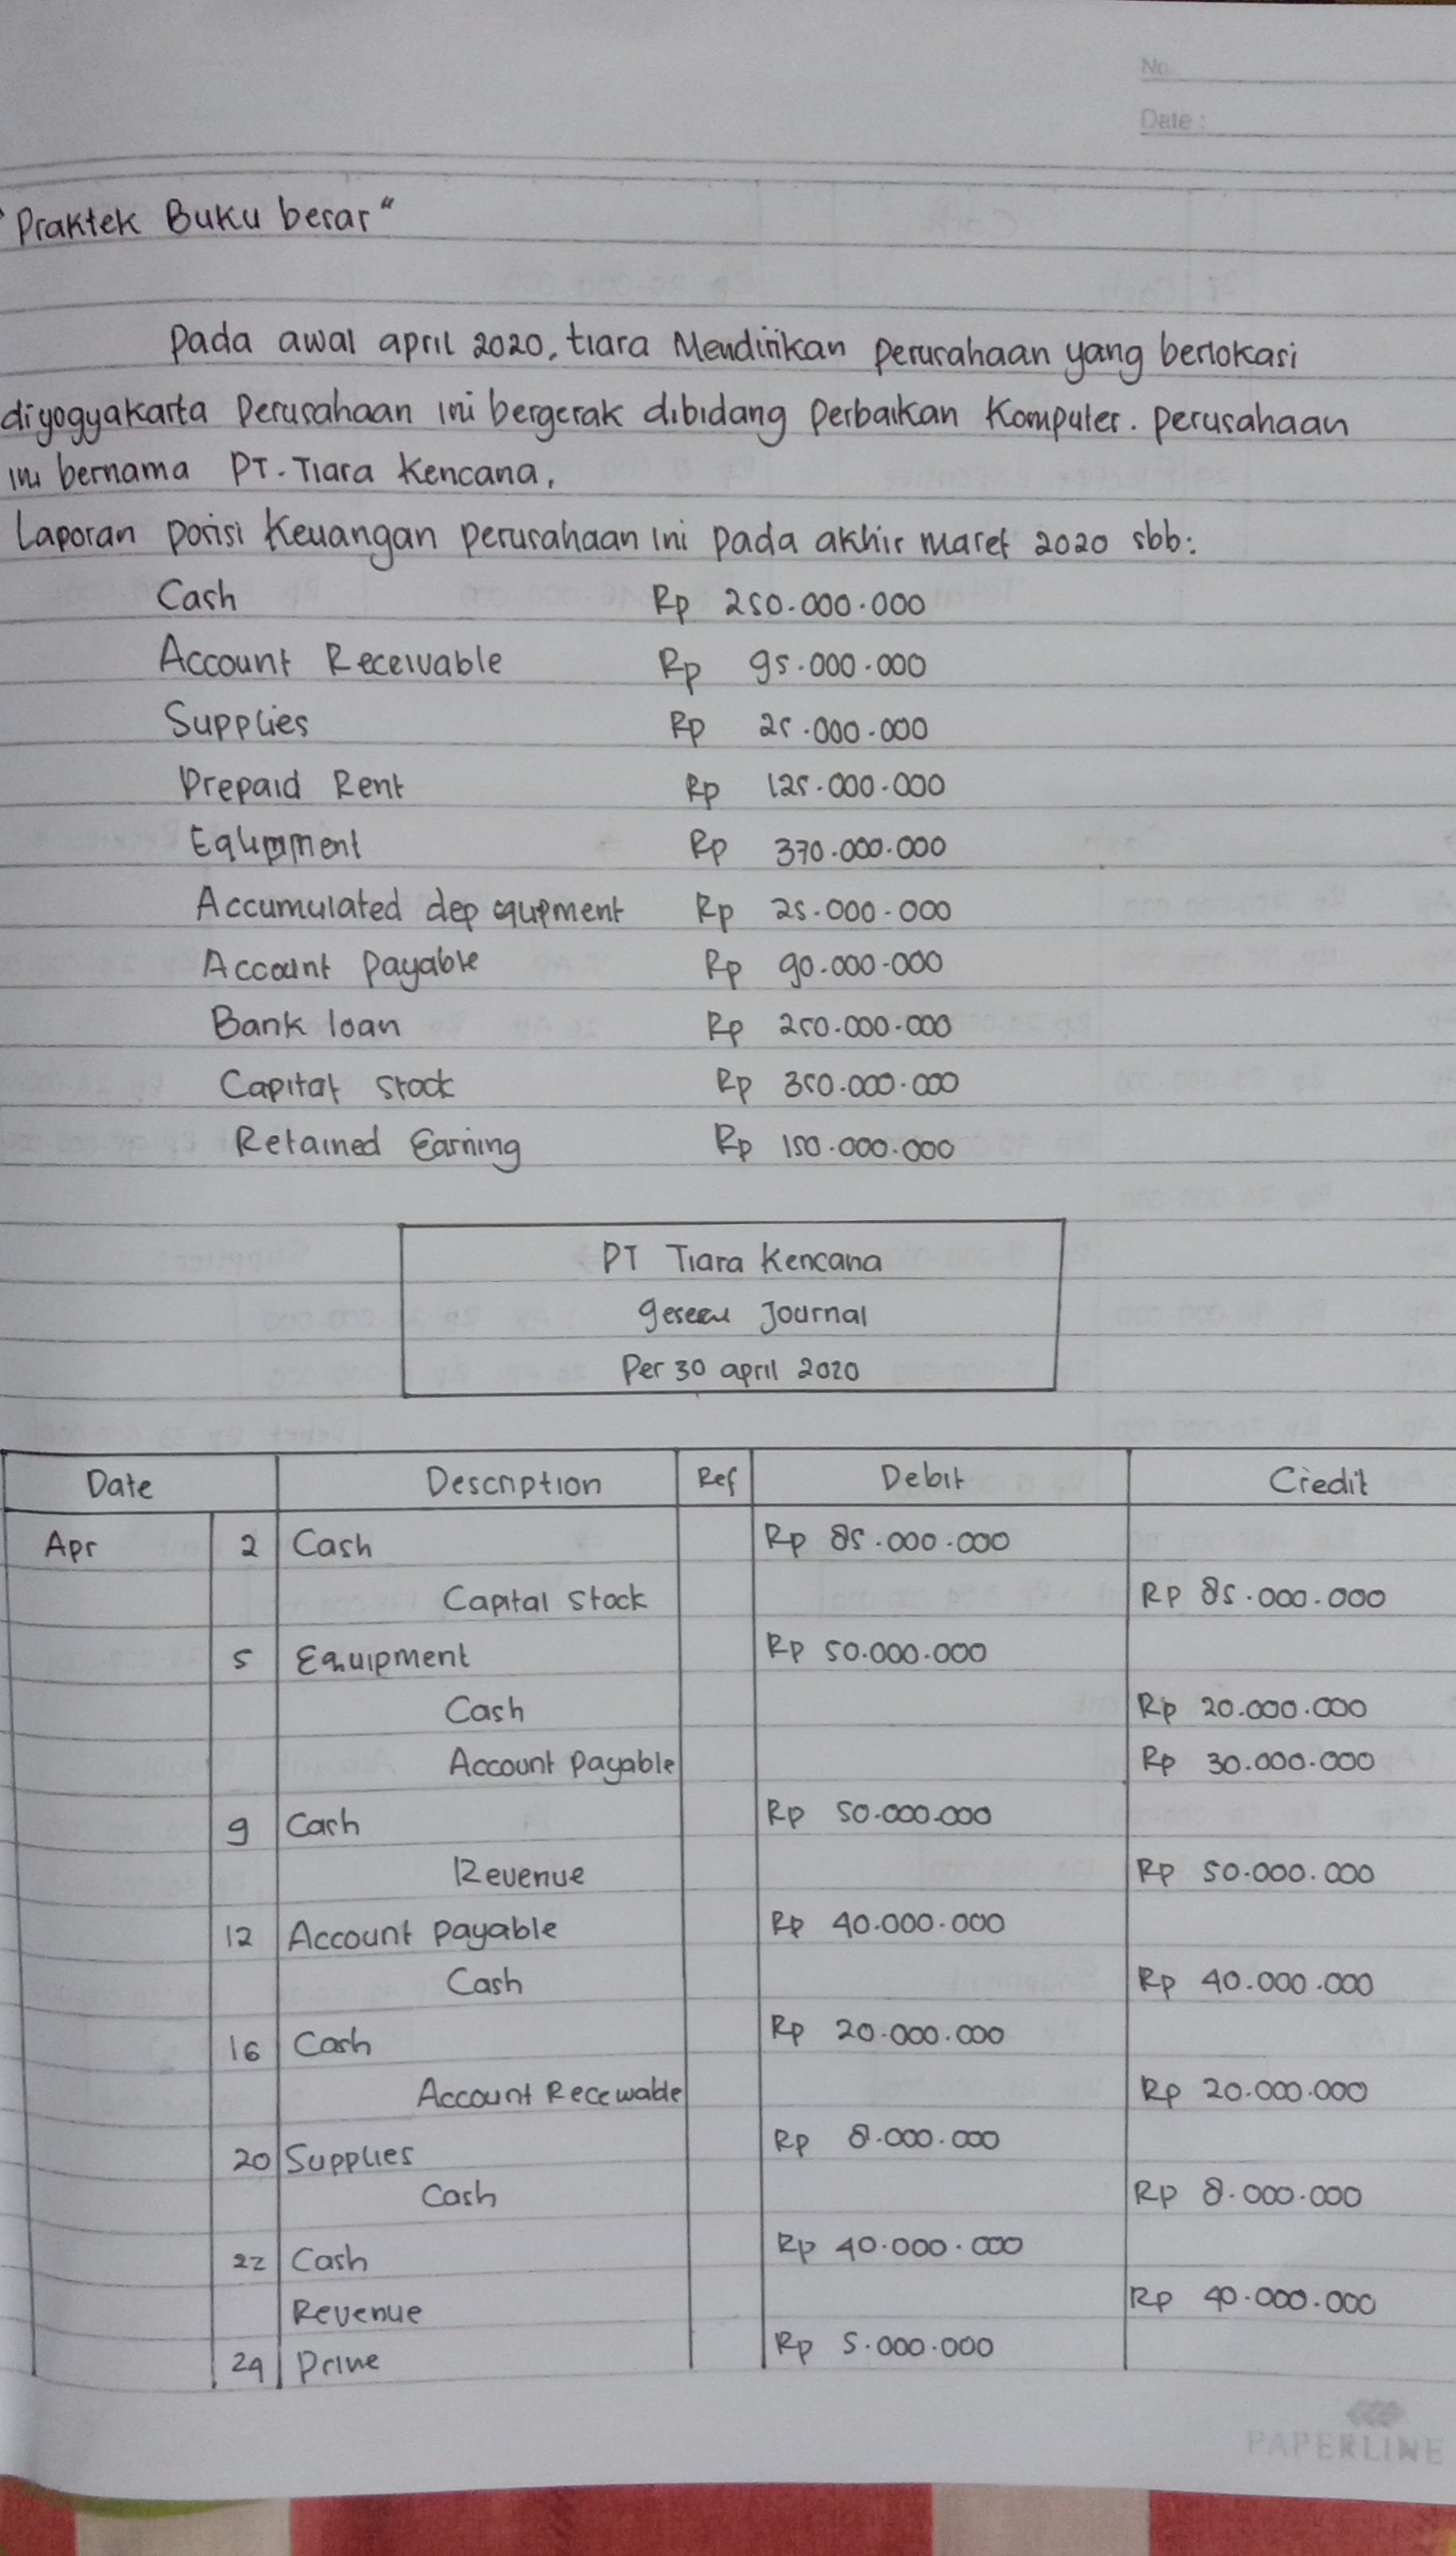 No.
Date:
"Praktek Buku besar"
Pada awal april 2020, tiara Mendirikan perusahaan yang berlokasi
diyogyakarta Perusahaan ini bergerak dibidang Perbaikan Komputer. perusahaan
ini bernama PT. Tiara Kencana.
Laporan posisi Keuangan perusahaan ini pada akhir maret 2020 sbb:
Cash Rp 250.000.000
Account Receivable Rp 95.000.000
Supplies Rp 25.000.000
Prepaid Rent Rp 125.000.000
Equipment Rp 370.000.000
Accumulated dep equipment Rp 25.000.000
Account payable Rp 90.000.000
Bank loan Rp 250.000.000
Capital stock Rp 350.000.000
Retained Earning Rp 150.000.000
PT Tiara Kencana
Journal
Per 30 april 2020
Date Description Ref Debit Credit
Apr 2 Cash Rp 85.000.000
Capital stock Rp 85.000.000
5 Equipment Rp 50.000.000
Cash Rp 20.000.000
Account payable Rp 30.000.000
9 Cash Rp 50.000.000
Revenue Rp 50.000.000
12 Account payable Rp 40.000.000
Cash Rp 40.000.000
16 Cash Rp 20.000.000
Account Receivable Rp 20.000.000
20 Supplies Rp 8.000.000
Cash Rp 8.000.000
22 Cash Rp 40.000.000
Revenue Rp 40.000.000
Rp 5.000.000
PAPERLINE